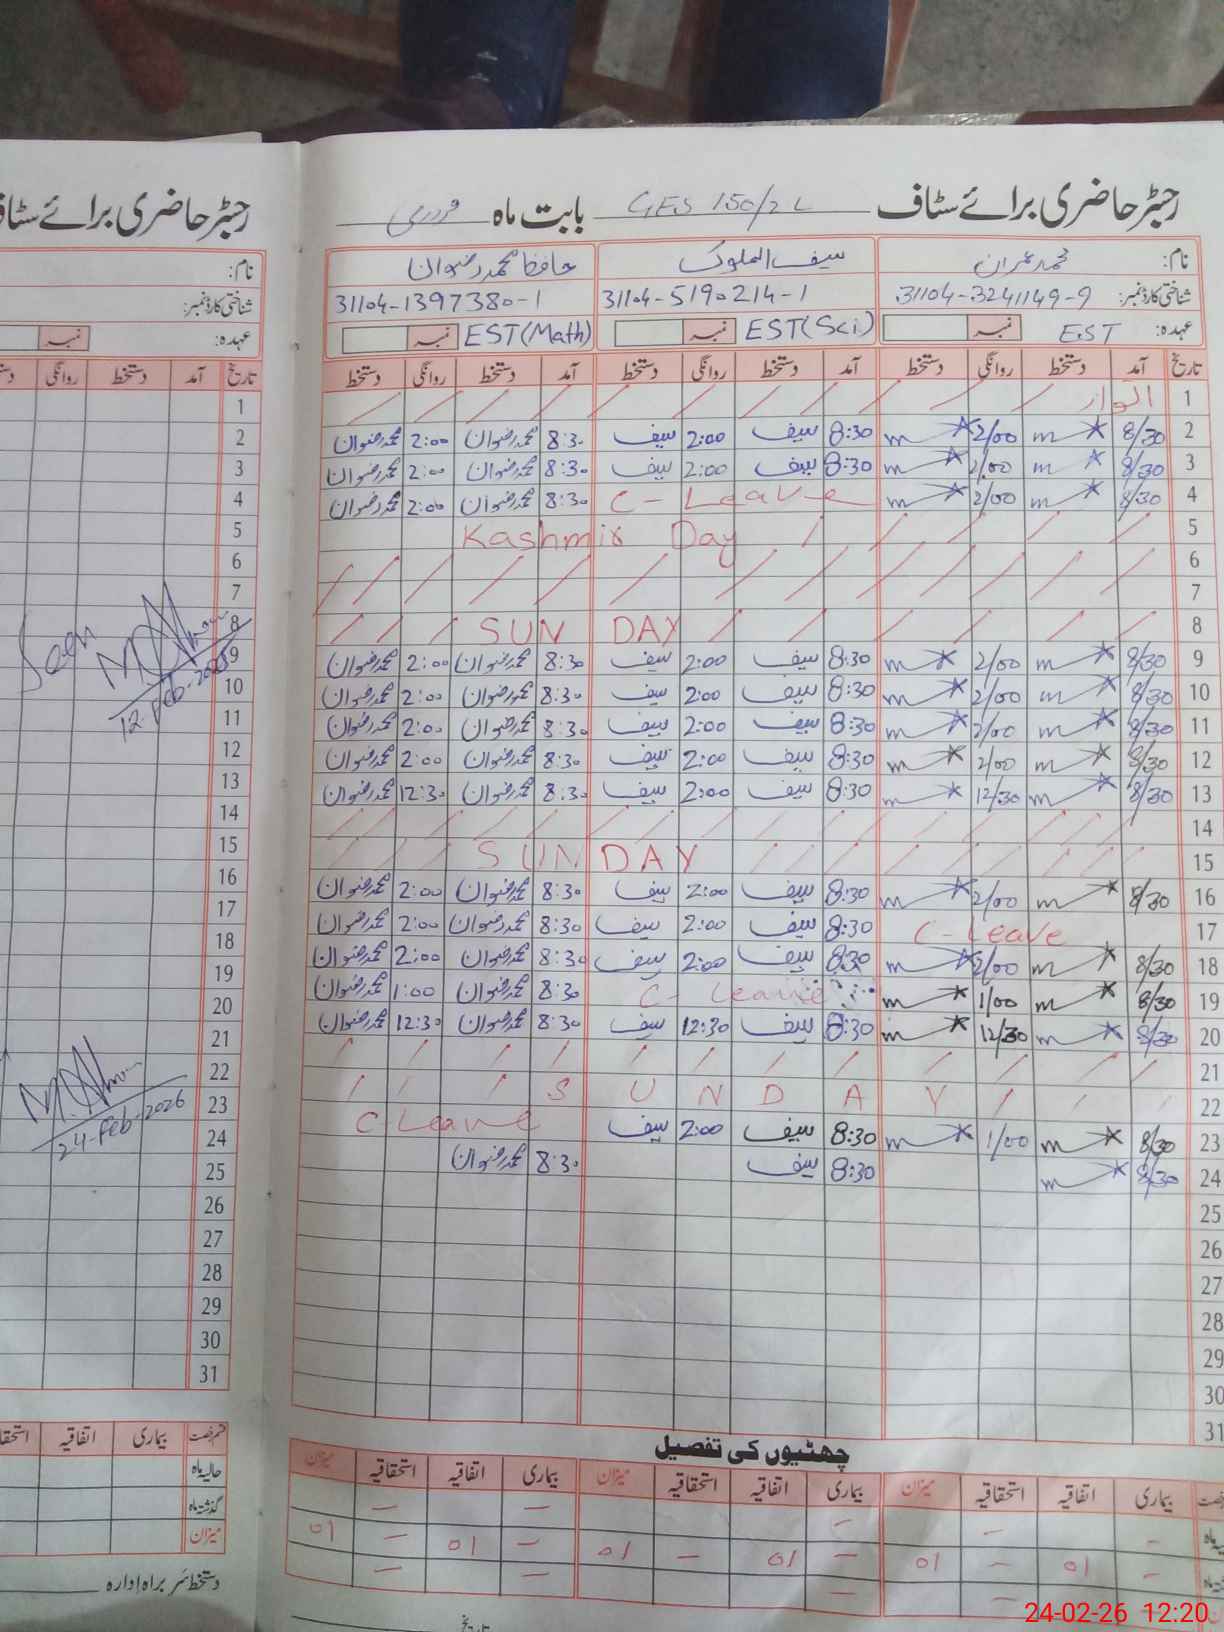 رجسٹر حاضری برائے سٹاف GES 150/2L بابت ماہ فروری
نام: محمد عمران سیف الملوک حافظ محمد رضوان
شناختی کارڈ نمبر: 31104-3241149-9 31104-5190214-1 31104-1397380-1
عہدہ: EST نمبر EST(Sci) نمبر EST(Math) نمبر
تاریخ آمد دستخط روانگی دستخط آمد دستخط روانگی دستخط آمد دستخط روانگی دستخط
1 اتوار
2 8/30 m 2/00 m 8:30 سیف 2:00 سیف 8:30 محمد رضوان 2:00 محمد رضوان
3 8/30 m 2/00 m 8:30 سیف 2:00 سیف 8:30 محمد رضوان 2:00 محمد رضوان
4 8/30 m 2/00 m C-Leave 8:30 محمد رضوان 2:00 محمد رضوان
5 Kashmir Day
6
7
8 SUN DAY
9 8/30 m 2/00 m 8:30 سیف 2:00 سیف 8:30 محمد رضوان 2:00 محمد رضوان
10 8/30 m 2/00 m 8:30 سیف 2:00 سیف 8:30 محمد رضوان 2:00 محمد رضوان
11 8/30 m 2/00 m 8:30 سیف 2:00 سیف 8:30 محمد رضوان 2:00 محمد رضوان
12 8/30 m 2/00 m 8:30 سیف 2:00 سیف 8:30 محمد رضوان 2:00 محمد رضوان
13 8/30 m 12/30 m 8:30 سیف 2:00 سیف 8:30 محمد رضوان 12:30 محمد رضوان
14
15 SUNDAY
16 8/30 m 2/00 m 8:30 سیف 2:00 سیف 8:30 محمد رضوان 2:00 محمد رضوان
17 C-Leave 8:30 سیف 2:00 سیف 8:30 محمد رضوان 2:00 محمد رضوان
18 8/30 m 2/00 m 8:30 سیف 2:00 سیف 8:30 محمد رضوان 2:00 محمد رضوان
19 8/30 m 1/00 m C-Leave 8:30 محمد رضوان 1:00 محمد رضوان
20 8/30 m 12/30 m 8:30 سیف 12:30 سیف 8:30 محمد رضوان 12:30 محمد رضوان
21
22 SUNDAY
23 8/30 m 1/00 m 8:30 سیف 2:00 سیف C Leave
24 8/30 m 8:30 سیف 8:30 محمد رضوان
25
26
27
28
29
30
31
چھٹیوں کی تفصیل
بیماری اتفاقیہ استحقاقیہ میزان بیماری اتفاقیہ استحقاقیہ میزان بیماری اتفاقیہ استحقاقیہ میزان
- -  - - -
- 01 - 01 - 01 - 01 - 01 - 01
- - - -
تاریخ
رجسٹر حاضری برائے سٹاف
نام:
شناختی کارڈ نمبر:
عہدہ: نمبر
تاریخ آمد دستخط روانگی
1
2
3
4
5
6
7
8
9 Seen
10
11 12-Feb-2026
12
13
14
15
16
17
18
19
20
21
22
23
24 24-Feb-2026
25
26
27
28
29
30
31
قسم رخصت بیماری اتفاقیہ
حالیہ ماہ
گذشتہ ماہ
میزان
دستخط سربراہ ادارہ
24-02-26 12:20